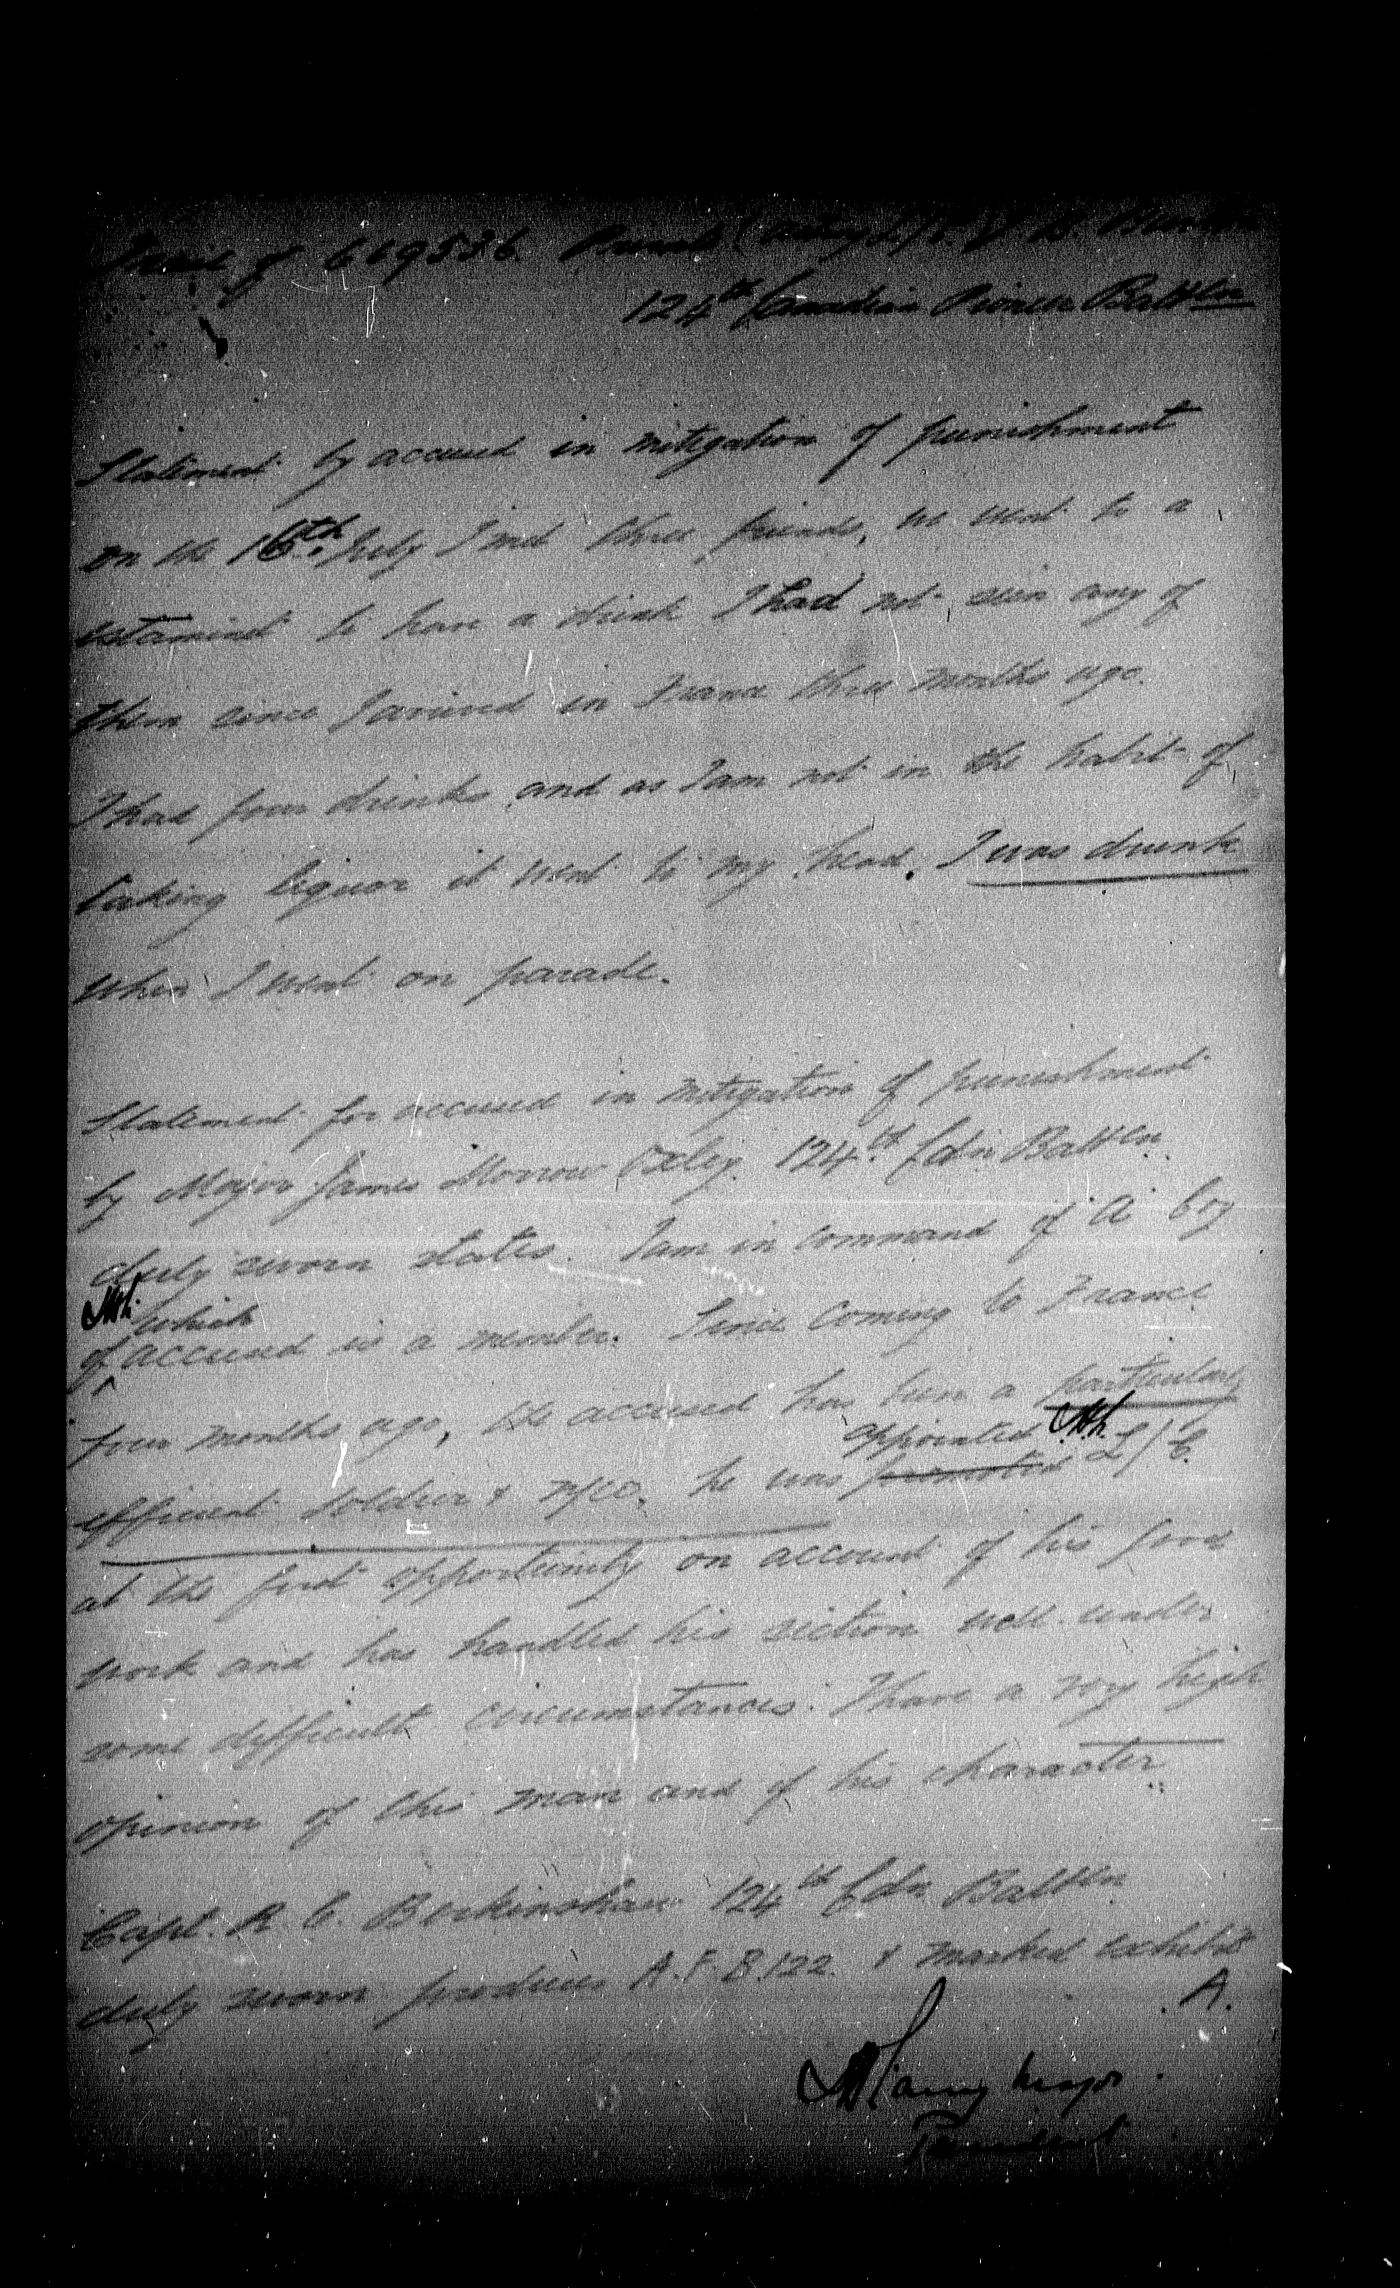 Trial of 669536. Private (acting L/C.)
124th Canadian Pioneer Battln
Statement by accused in mitigation of punishment
On the 16th July I met three friends, we went to a
estaminet to have a drink I had not seen any of
them since I arrived in France three months ago.
I had four drinks and as I am not in the habit of
taking liquor it went to my head. I was drunk
when I went on parade.
Statement for accused in mitigation of punishment
by Major James Morrow Oxley 124th Cdn Battln
duly sworn states. I am in command of A Coy
which
of accused is a member. Since coming to France
four months ago, the accused has been a particularly
appointed
efficient soldier & N/CO. he was promoted L/C.
at the first opportunity on account of his good
work and has handled his section well under
some difficult circumstances. I have a very high
opinion of this man and of his character
Capt. R. C. Berkinshaw 124th Cdn Battln
duly sworn produces A.F.B.122. & marked exhibit
A.
Major
President